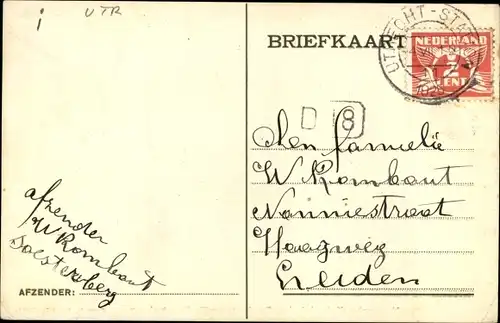 i UTR
BRIEFKAART
UTRECHT-STA
NEDERLAND
2
CENT
D 8
Aen familie
W Rombout
Nanniestraat
Haagweg
Leiden
afzender
W Rombout
Soesterberg
AFZENDER: